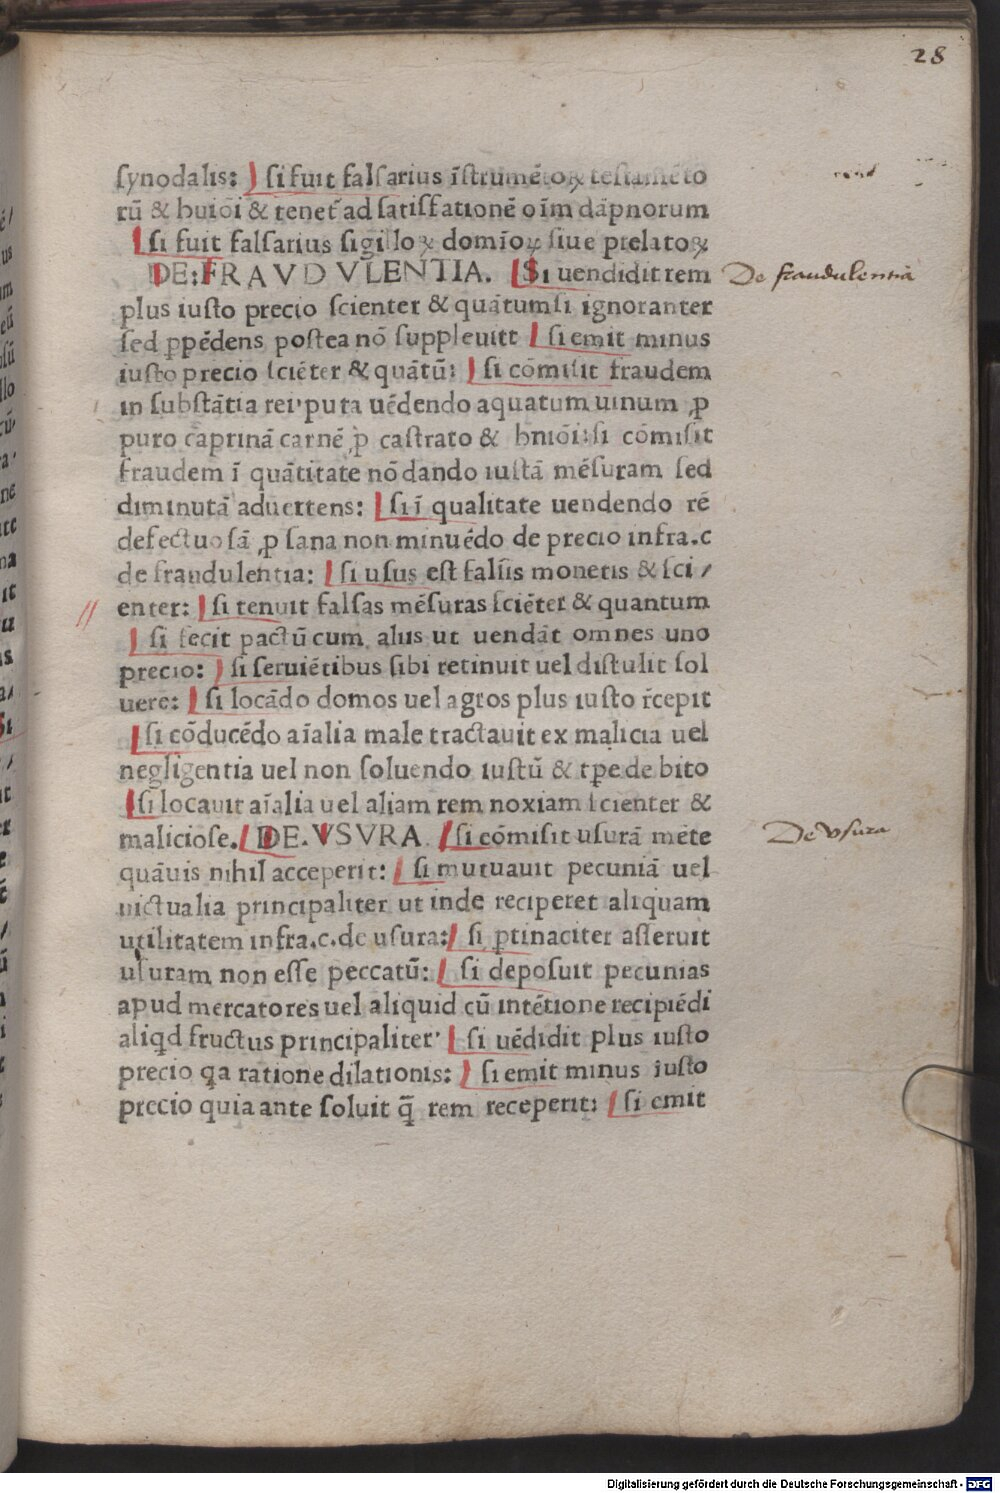 28
synodalis: si fuit falsarius īstrumētoꝝ testamēto
rū & huiōi & tenet᷑ ad satisfationē oīm dāpnorum
si fuit falsarius sigilloꝝ domīoꝝ siue prelatoꝝ
DE: FRAVDVLENTIA. Si uendidit rem
De fraudulentia
plus iusto precio scienter & quātumsi ignoranter
sed ꝓpēdens postea nō suppleuitt si emit minus
iusto precio sciēter & quātū: si cōmisit fraudem
in substātia rei' puta uēdendo aquatum uinum ꝓ
puro caprinā carnē ꝓ castrato & hniōi: si cōmisit
fraudem ī quātitate nō dando iustā mēsuram sed
diminutā aduertens: si ī qualitate uendendo rē
defectuosā ꝓ sana non minuēdo de precio infra.c
de fraudulentia: si usus est falsis monetis & sci/
enter: si tenuit falsas mēsuras sciēter & quantum
si fecit pactū cum aliis ut uendāt omnes uno
precio: si seruiētibus sibi retinuit uel distulit sol
uere: si locādo domos uel agros plus iusto r̄cepit
si cōducēdo aīalia male tractauit ex malicia uel
negligentia uel non soluendo iustū & tp̄e debito
si locauit aīalia uel aliam rem noxiam scienter &
maliciose. DE. VSVRA. si cōmisit usurā mēte
De Vsura
quāuis nihil acceperit: si mutuauit pecuniā uel
uictualia principaliter ut inde reciperet aliquam
utilitatem infra.c.de usura: si ꝑtinaciter asseruit
usuram non esse peccatū: si deposuit pecunias
apud mercatores uel aliquid cū intētione recipiēdi
aliqd fructus principaliter' si uēdidit plus iusto
precio qa ratione dilationis: si emit minus iusto
precio quia ante soluit q̄ rem receperit: si emit
Digitalisierung gefördert durch die Deutsche Forschungsgemeinschaft - DFG